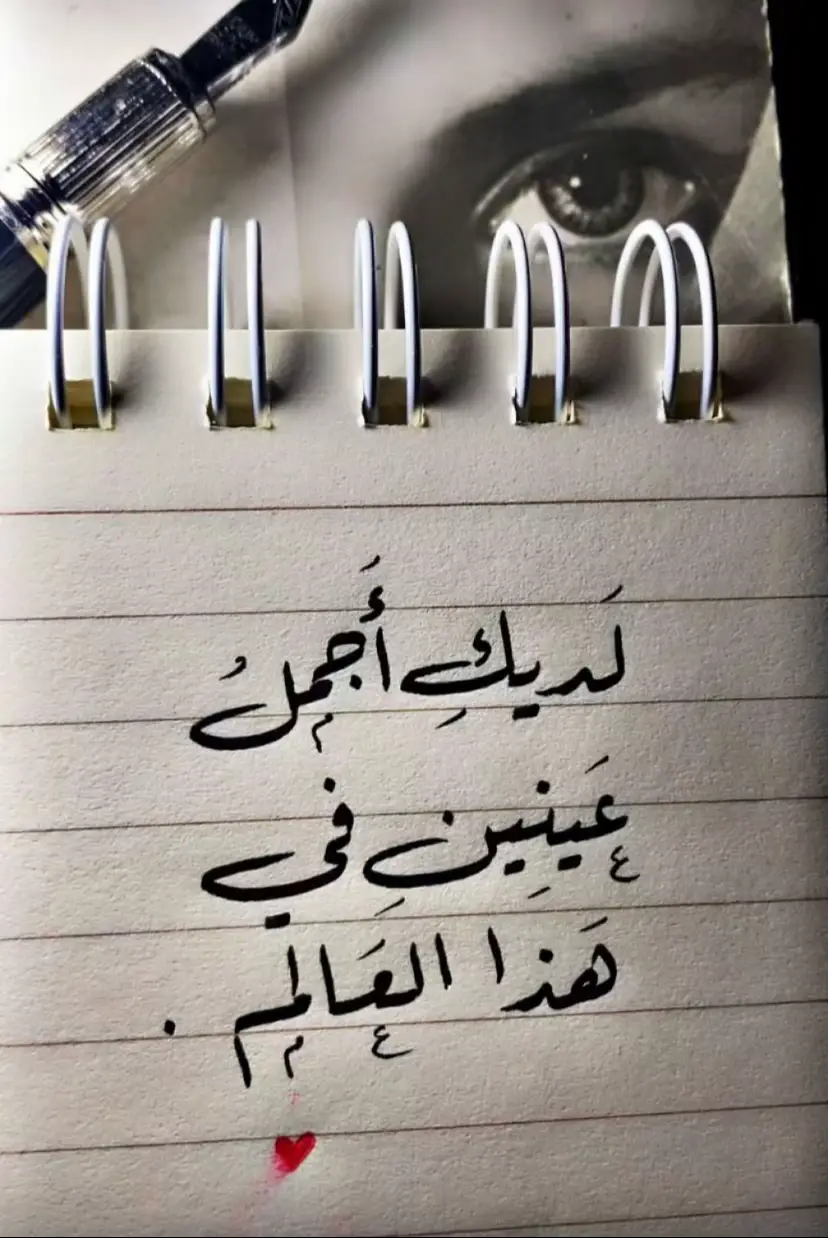 لَديكِ أَجملُ
عَينِينِ في
هَذا العَالم .